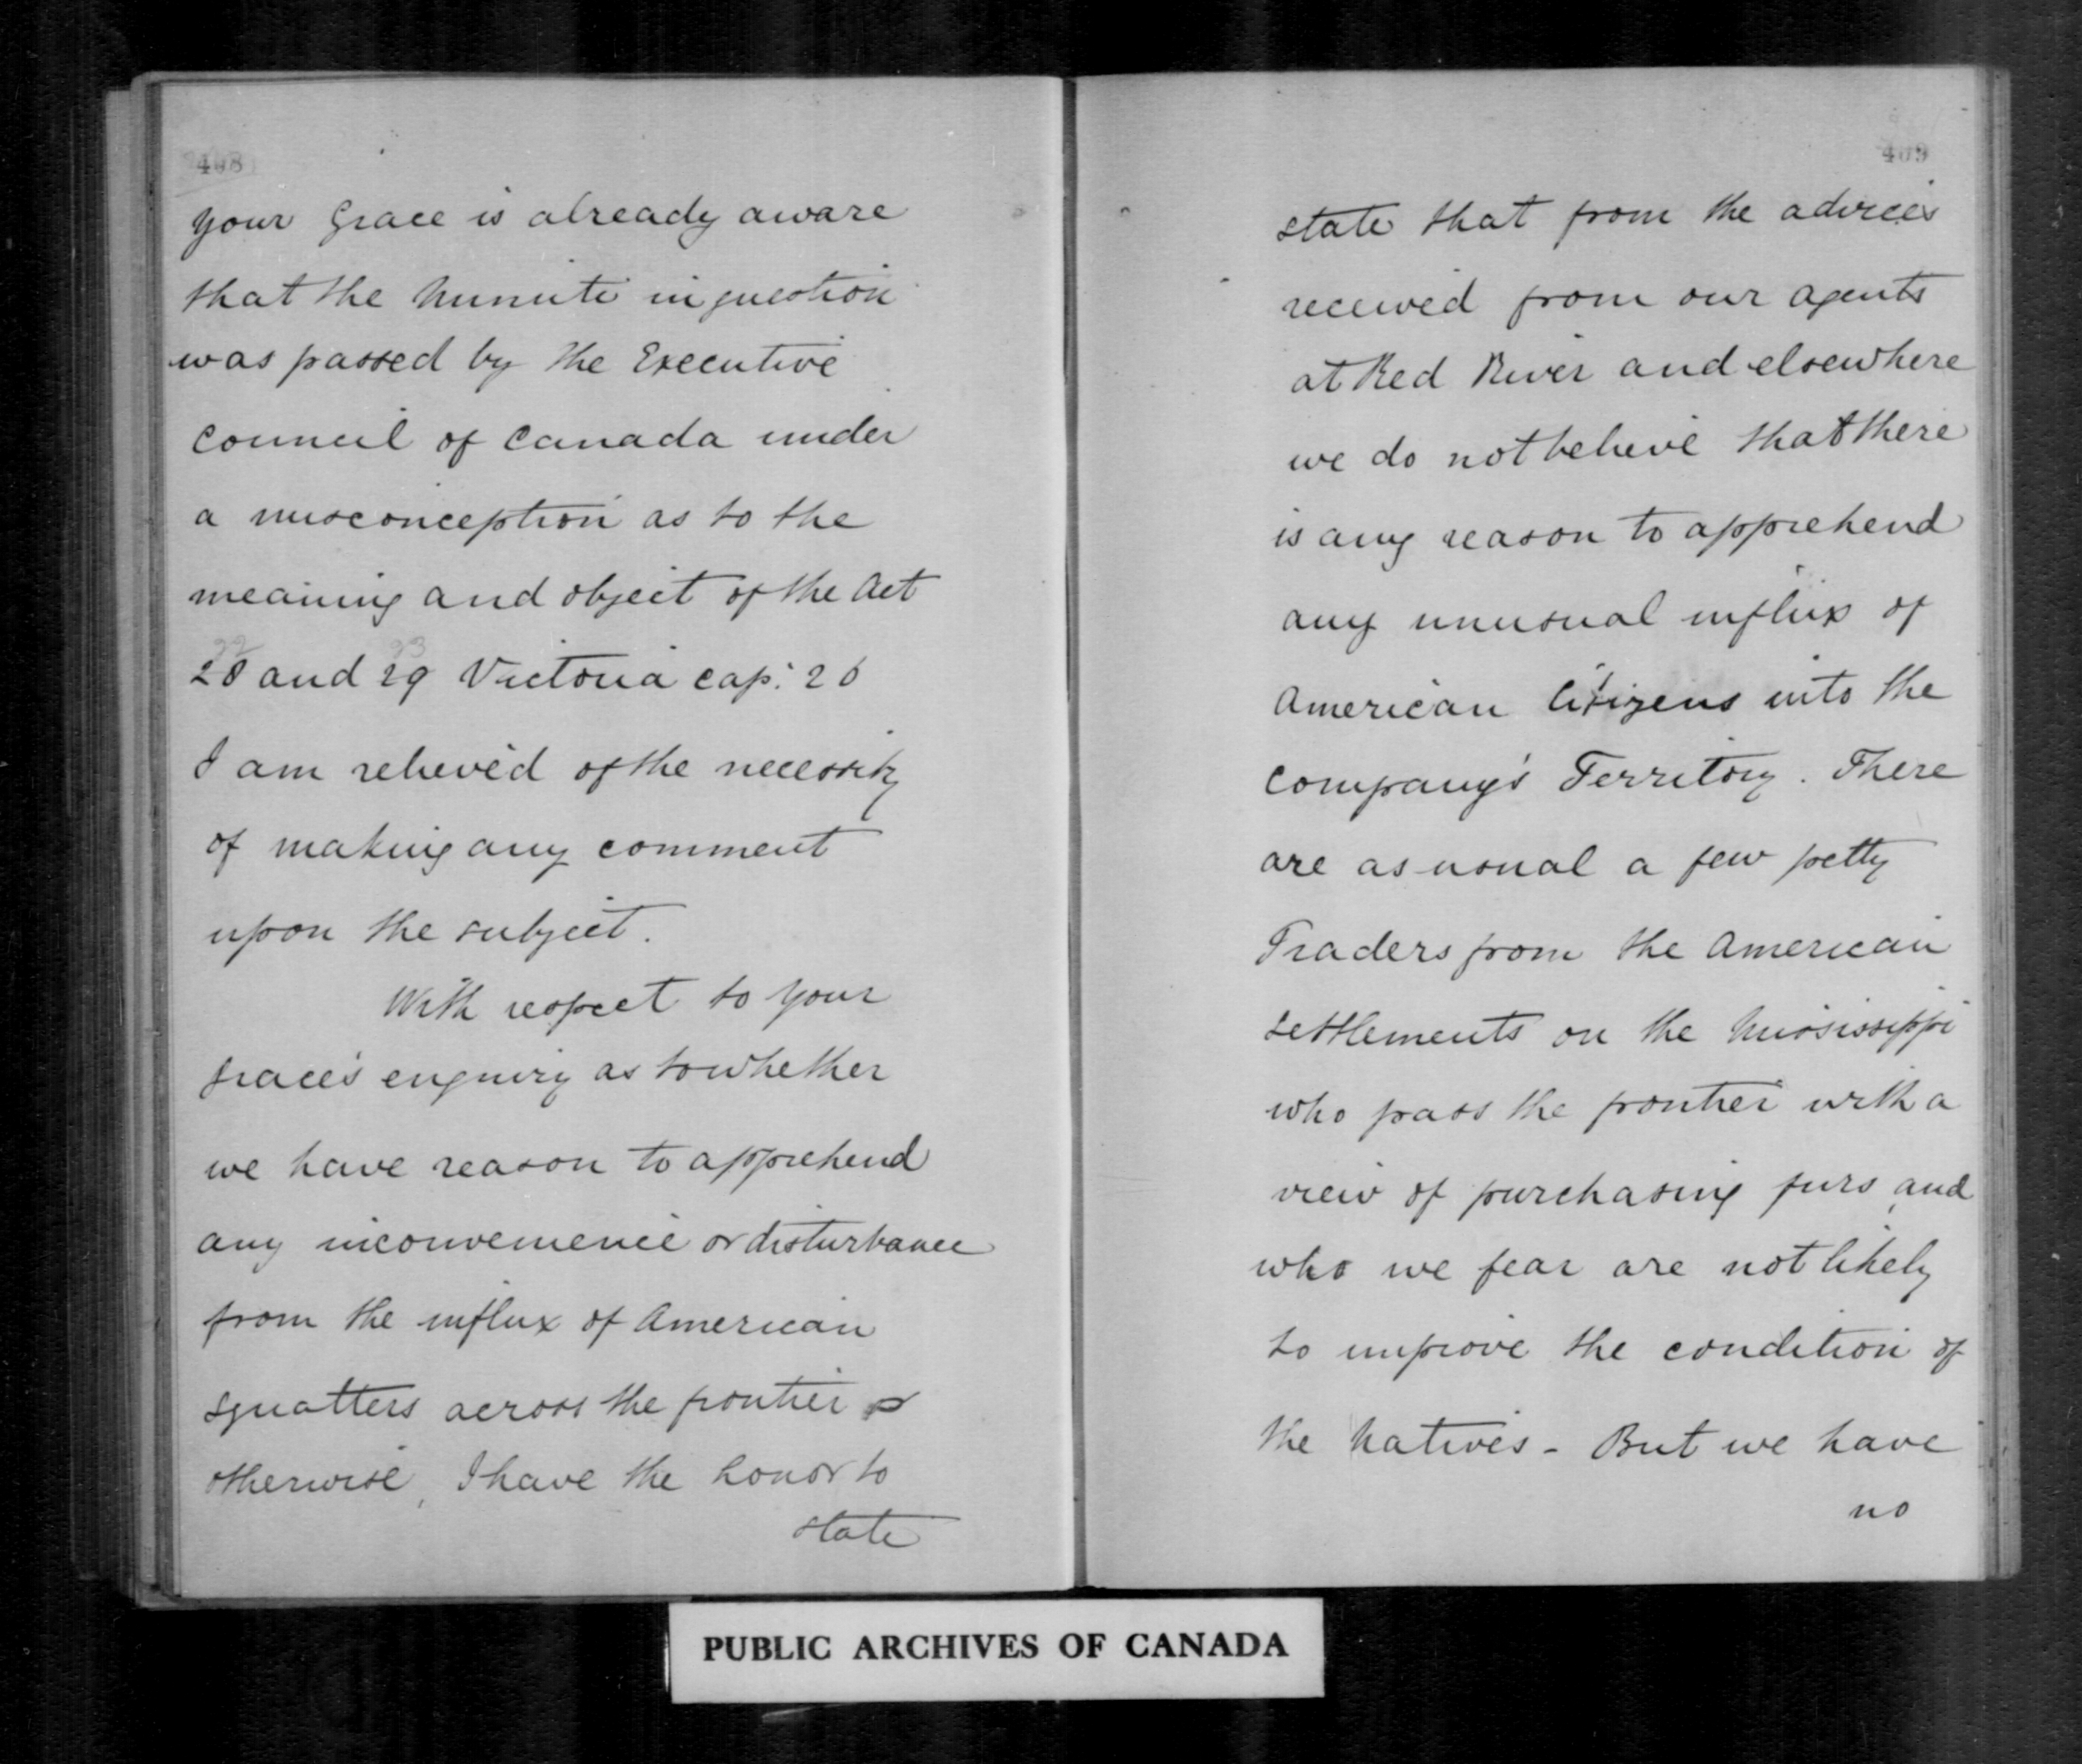 408
your Grace is already aware
that the Minute in question
was passed by the Executive
Council of Canada under
a misconception as to the
meaning and object of the Act
22 23
28 and 29 Victoria cap: 26
I am relieved of the necessity
of making any comment
upon the subject.
With respect to your
Grace's enquiry as to whether
we have reason to apprehend
any inconvenience or disturbance
from the influx of American
squatters across the frontier or
otherwise, I have the honor to
state
409
state that from the advices
received from our agents
at Red River and elsewhere
we do not believe that there
is any reason to apprehend
any unusual influx of
American Citizens into the
Company's Territory. There
are as usual a few petty
Traders from the American
settlements on the Mississippi
who pass the frontier with a
view of purchasing furs, and
who we fear are not likely
to improve the condition of
the Natives - But we have
no
PUBLIC ARCHIVES OF CANADA